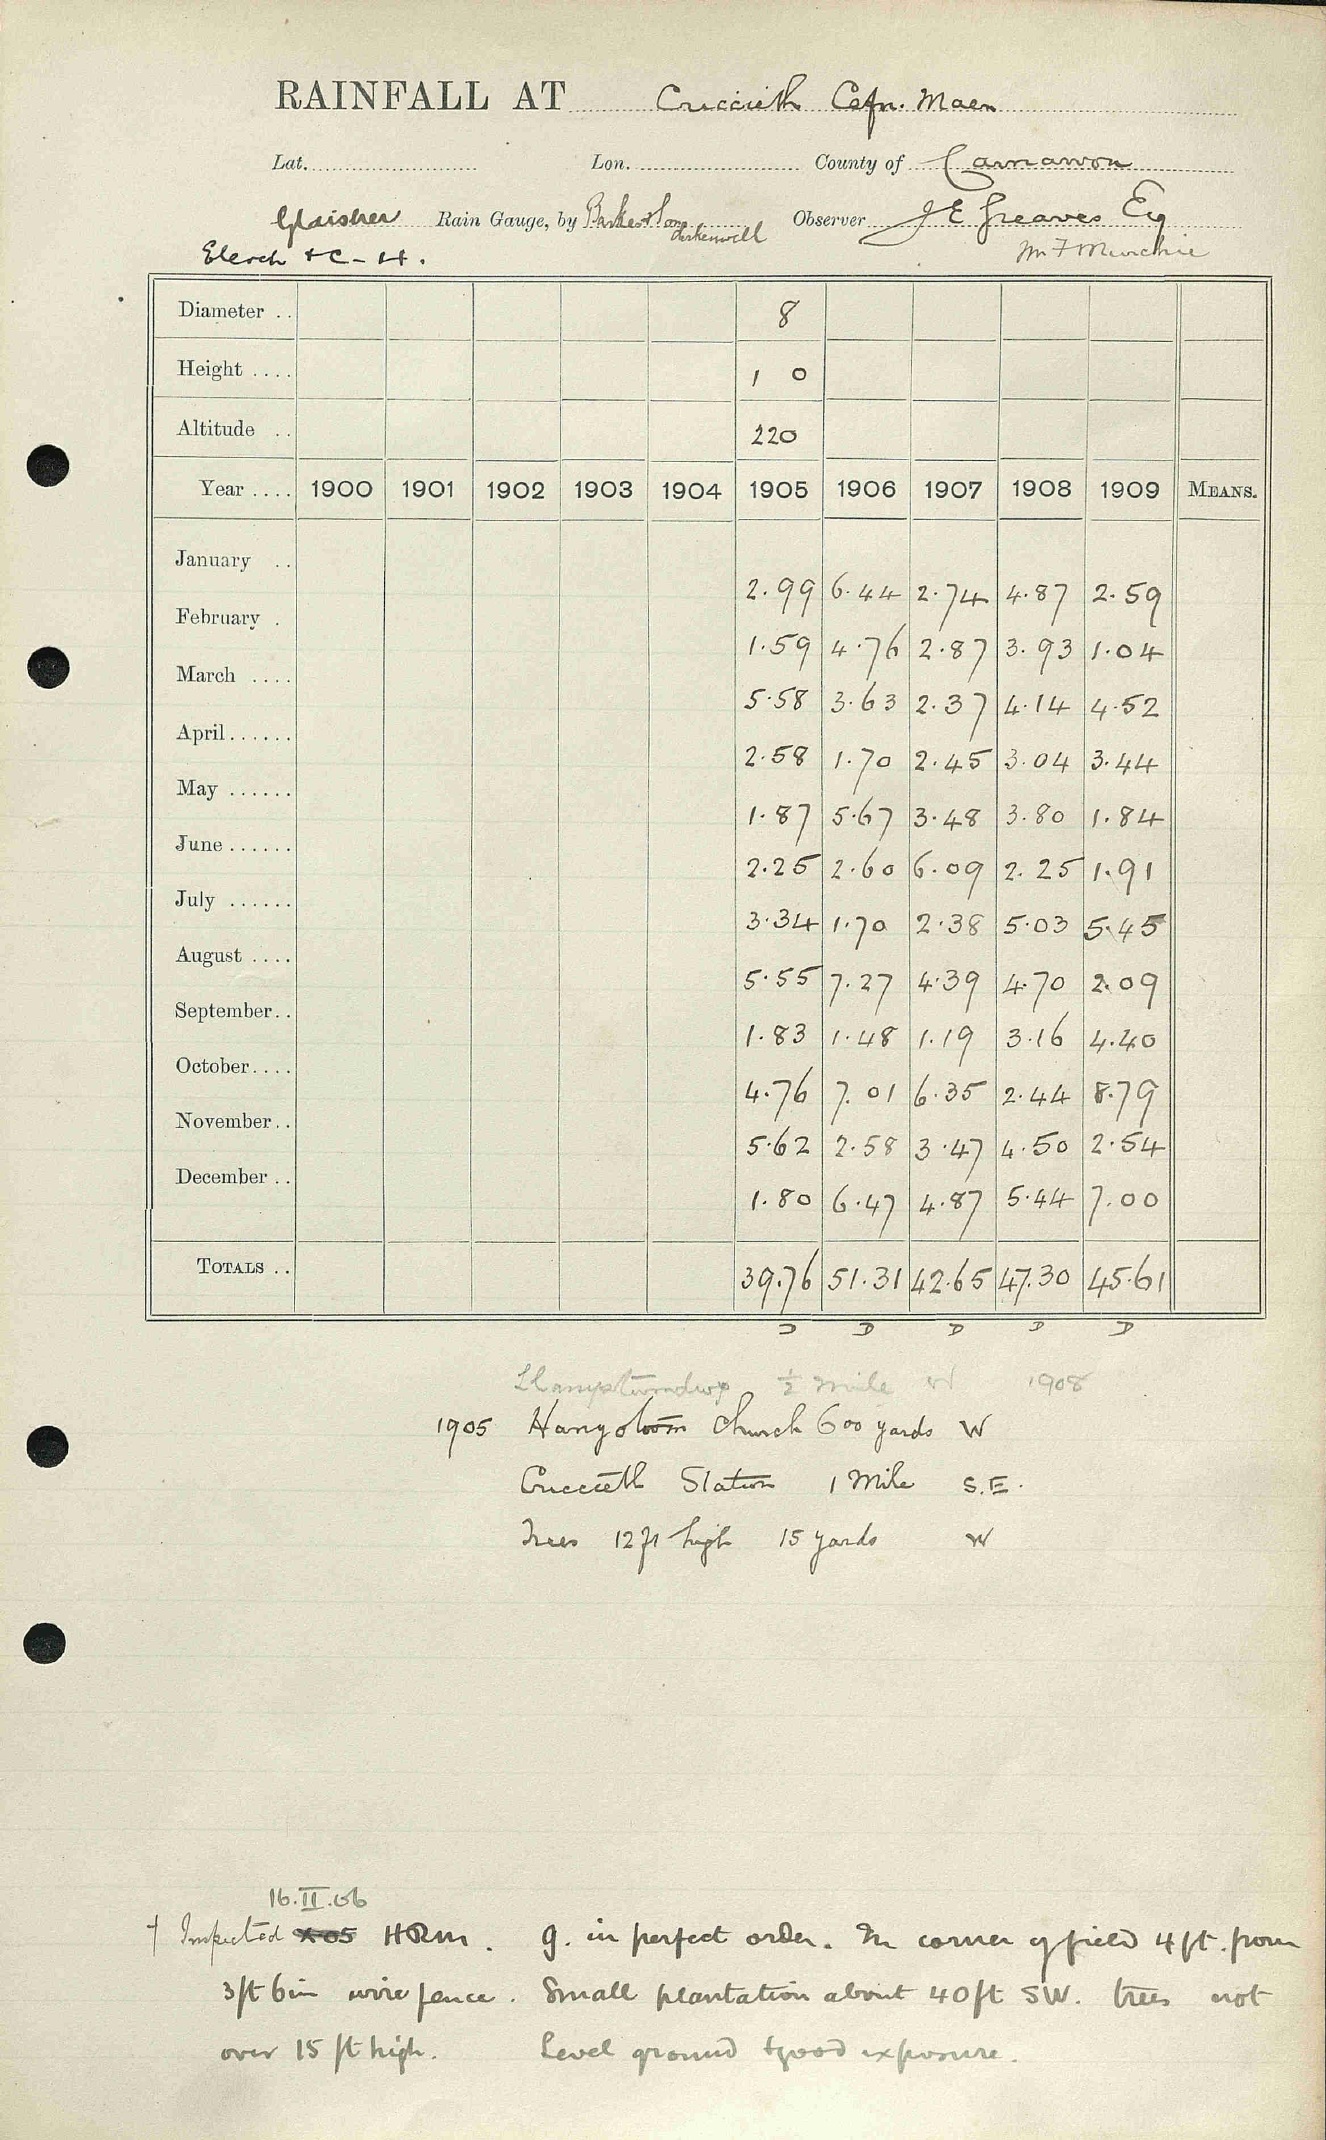 RAINFALL AT Criccieth Cefn. Maen
Lat. Lon. County of Carnarvon
Glaisher Rain Gauge, by Barker & Son Clerkenwell Observer J E Greaves Esq
+ C - H. Mr F Murchie
Diameter .. 8
Height .... 1 0
Altitude .. 220
Year .... 1900 1901 1902 1903 1904 1905 1906 1907 1908 1909 MEANS.
January .. 2.99 6.44 2.74 4.87 2.59
February . 1.59 4.76 2.87 3.93 1.04
March .... 5.58 3.63 2.37 4.14 4.52
April...... 2.58 1.70 2.45 3.04 3.44
May ...... 1.87 5.67 3.48 3.80 1.84
June ...... 2.25 2.60 6.09 2.25 1.91
July ...... 3.34 1.70 2.38 5.03 5.45
August .... 5.55 7.27 4.39 4.70 2.09
September.. 1.83 1.48 1.19 3.16 4.40
October.... 4.76 7.01 6.35 2.44 8.79
November.. 5.62 2.58 3.47 4.50 2.54
December .. 1.80 6.47 4.87 5.44 7.00
TOTALS .. 39.76 51.31 42.65 47.30 45.61
D D D D D
½ mile W 1908
1905 Church 600 yards W
Criccieth Station 1 Mile S.E.
Trees 12 ft high 15 yards W
16.II.06
† Inspected X 05 HRM. g. in perfect order. In corner of field 4 ft. from
3 ft 6 in wire fence. Small plantation about 40 ft SW. trees not
over 15 ft high. Level ground & good exposure.